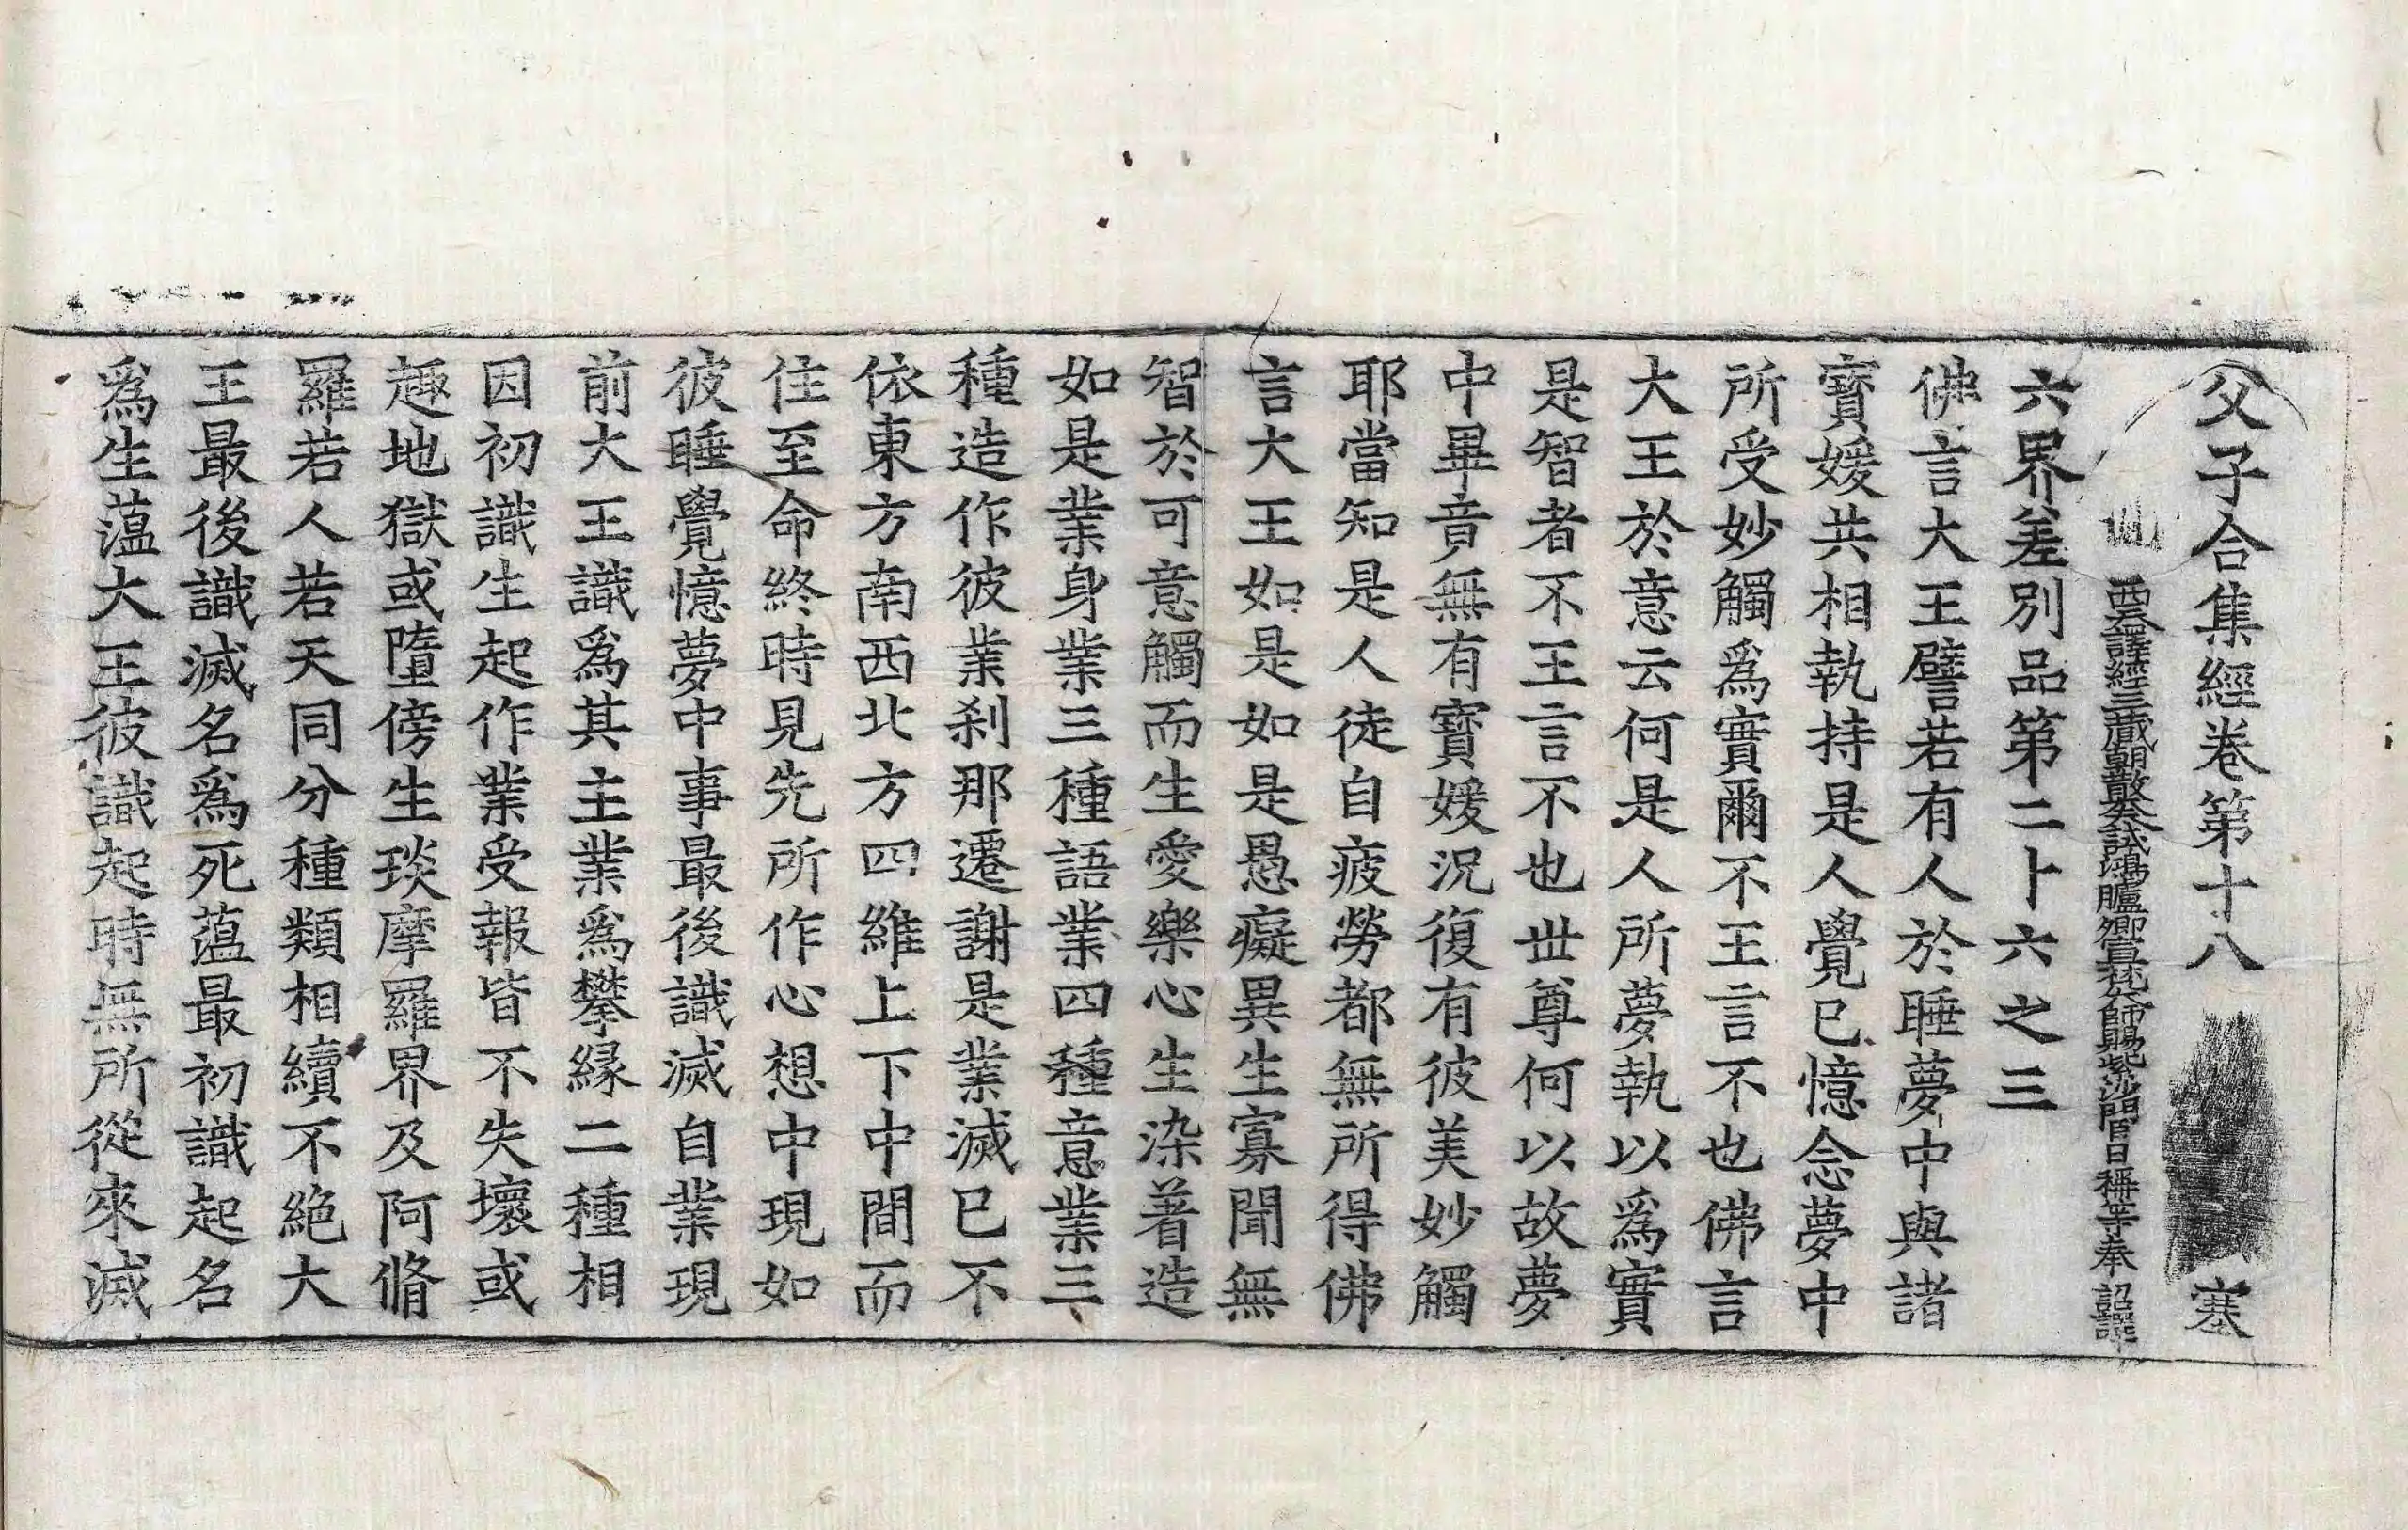 父子合集經卷第十八 塞
西天譯經三藏朝散大夫試鴻臚卿宣梵大師賜紫沙門臣日稱等奉 詔譯
六界差別品第二十六之三
佛言大王譬若有人於睡夢中與諸
寶媛共相執持是人覺已憶念夢中
所受妙觸爲實爾不王言不也佛言
大王於意云何是人所夢執以爲實
是智者不王言不也世尊何以故夢
中畢竟無有寶媛況復有彼美妙觸
耶當知是人徒自疲勞都無所得佛
言大王如是如是愚癡異生寡聞無
智於可意觸而生愛樂心生染著造
如是業身業三種語業四種意業三
種造作彼業刹那遷謝是業滅已不
依東方南西北方四維上下中間而
住至命終時見先所作心想中現如
彼睡覺憶夢中事最後識滅自業現
前大王識爲其主業爲攀緣二種相
因初識生起作業受報皆不失壞或
趣地獄或墮傍生琰摩羅界及阿脩
羅若人若天同分種類相續不絕大
王最後識滅名爲死蕰最初識起名
爲生蕰大王彼識起時無所從來滅